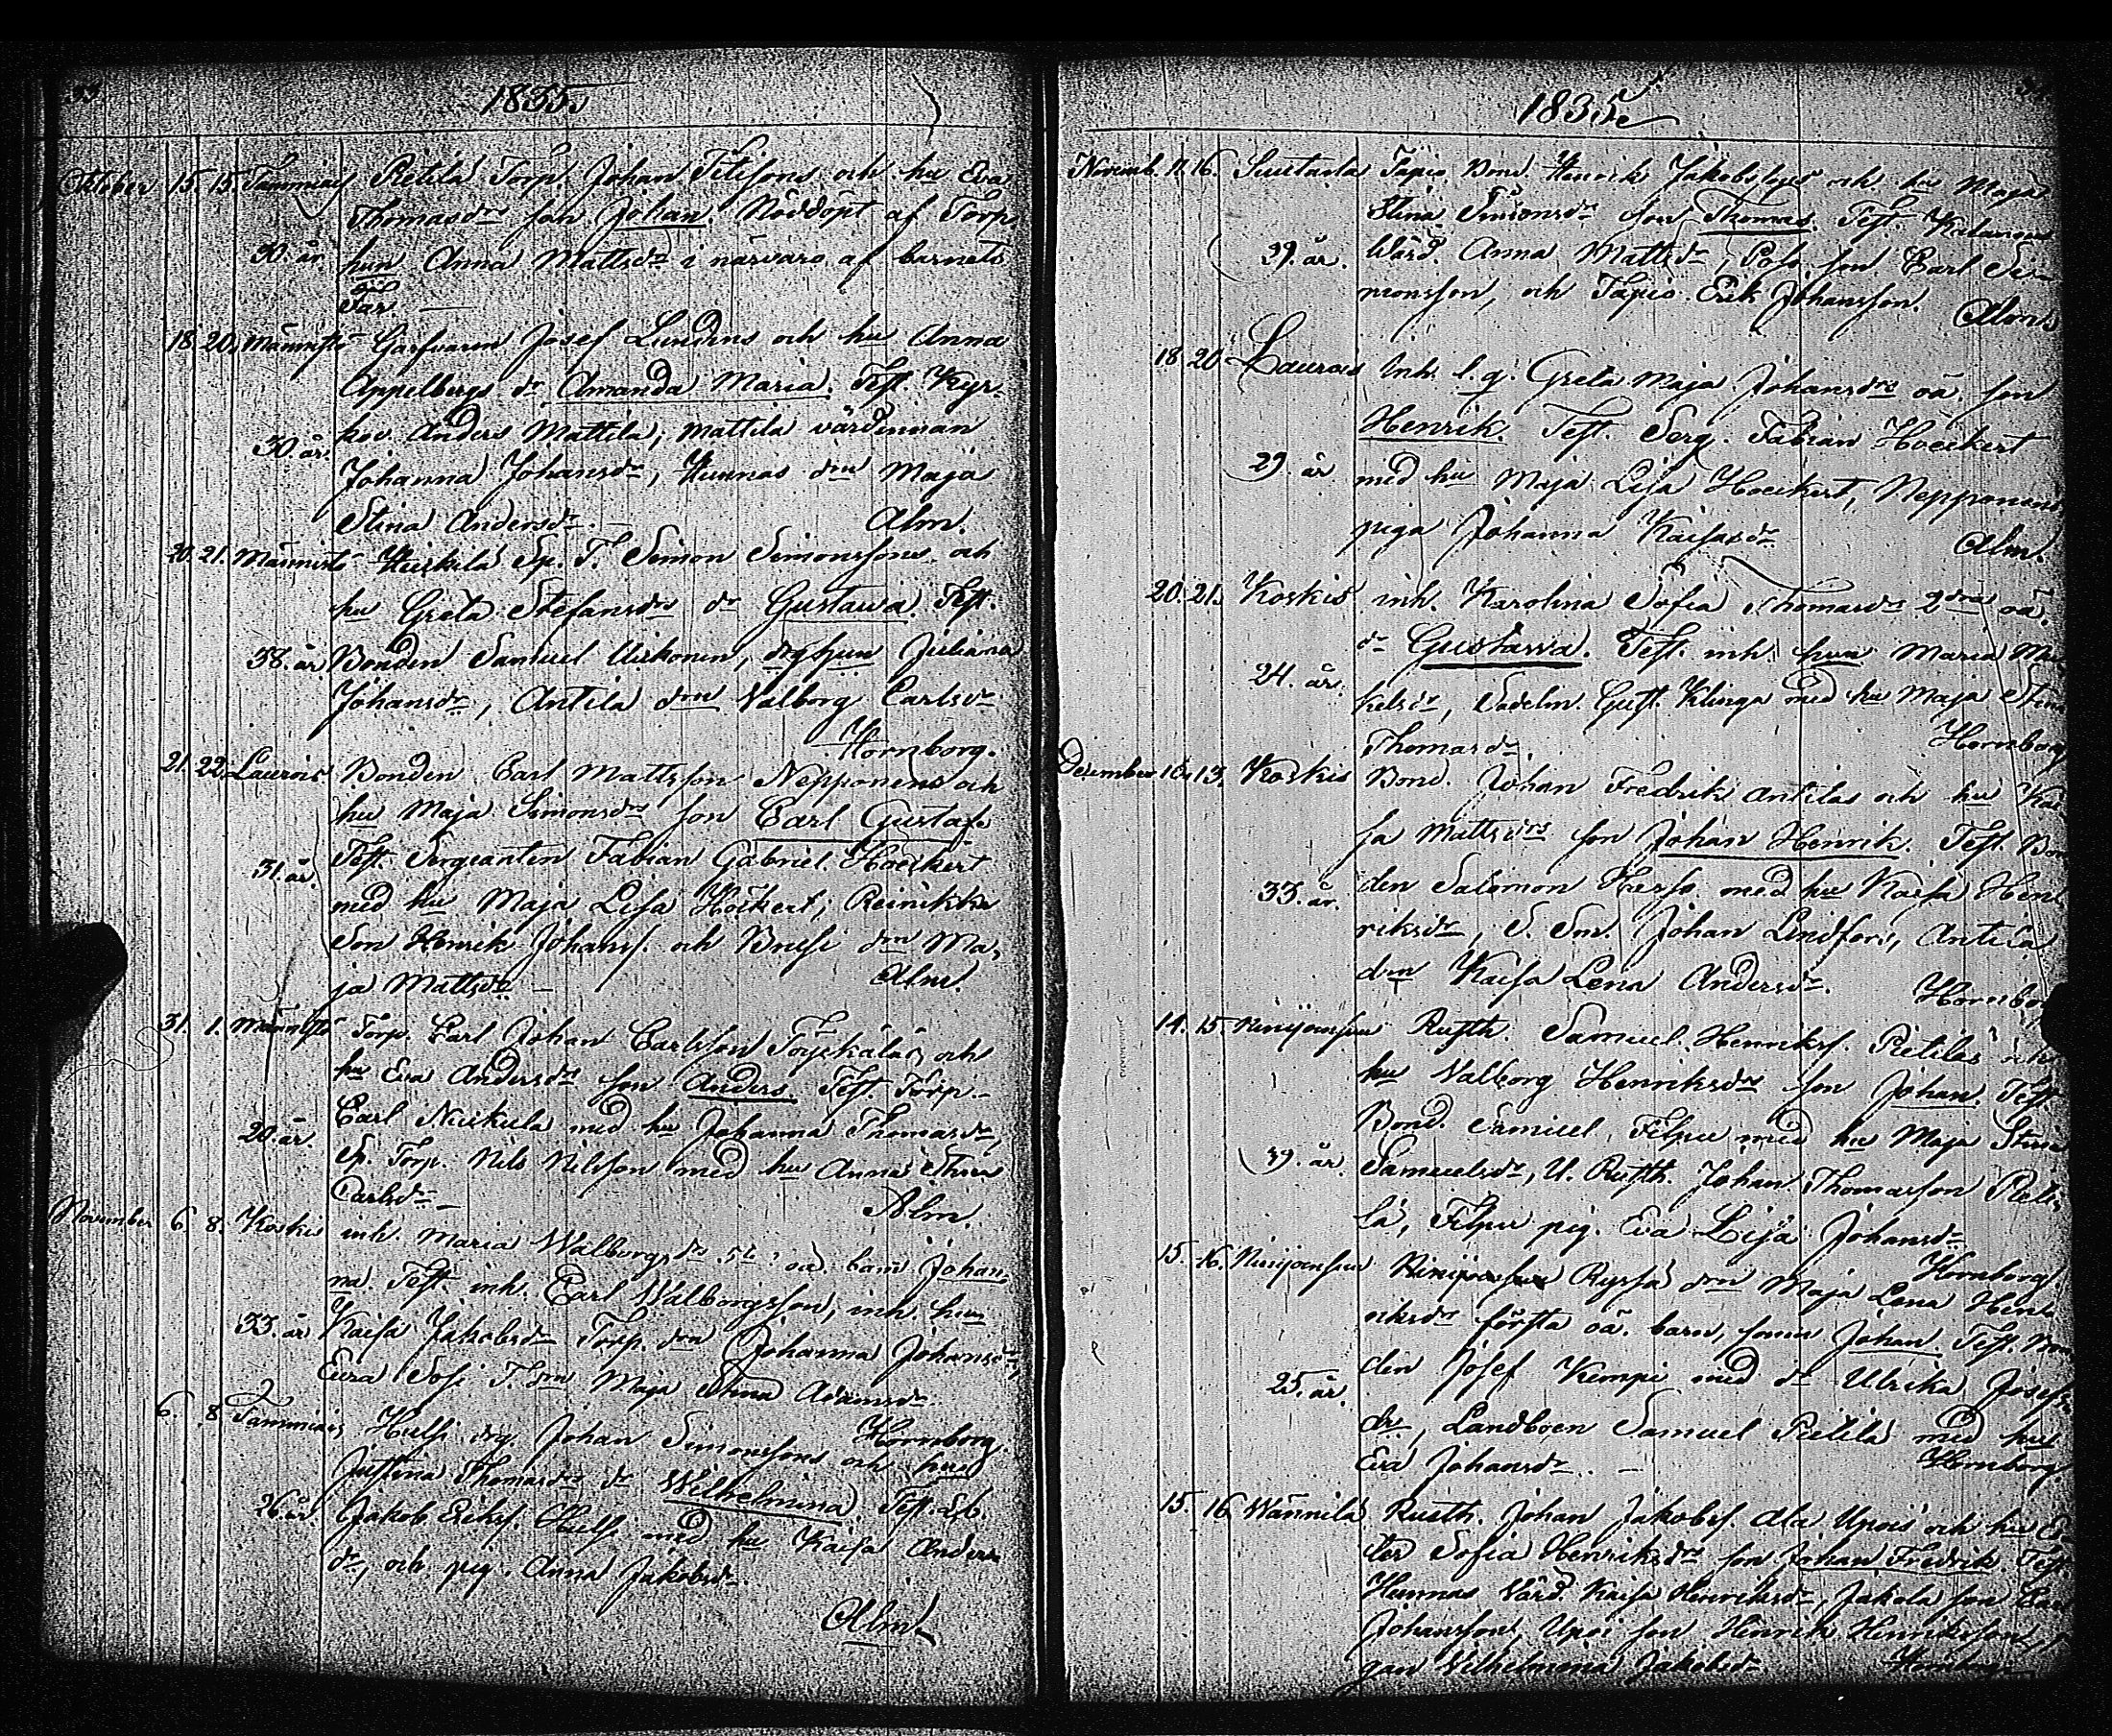 33
1835.
October 15. 15. Tammiais Pietilä Torp. Johan Titisons och hu Eva
Thomasdrs son Johan. Nöddöpt af Torp.
30. år. hun Anna Mattsdr i närvaro af barnets
Far
18. 20. Männistö Garfvaren Josef Lundens och hu Anna
Appelbergs dr Amanda Maria. Test. Kyr-
30 år. kov. Anders Mattila, Mattila värdinnan
Johanna Johansdr, Hunnas drn Maja
Stina Andersdr. Alm.
20. 21. Männistö Heikilä Sp. T. Simon Simonssons och
hu Greta Stefansdrs dr Gustawa. Test.
38. år Bonden Samuel Uskonen, drghun Juliana
Johansdr, Antila drn Valborg Carlsdr
Hornborg.
21. 22. Laurois Bonden Carl Mattsson Nepponens och
hu Maja Simonsdrs son Carl Gustaf.
31. år. Test. Sergeanten Fabian Gabriel Hoeckert
med hu Maja Lisa Höckert, Reinikka
Son Henrik Johanss. och drn Ma-
ja Mattsdr Alm.
31. 1. Männistö Torp. Carl Johan Carlsson och
hu Eva Andersdrs son Anders. Test. Torp.
Carl med hu Johanna Thomasdr,
20. år. Sp. Torp. Nils Nilsson med hu Anna Stina
Carlsdr Alm.
November 6. 8. Koskis inh. Maria Walborgsdrs 5te oä. barn Johan-
na. Test. inh. Carl Walborgsson, inh. hun
33. år Kaisa Jakobsdr Torp. drn Johanna Johansdr,
Eura T. drn Maja Stina Adamsdr
Hornborg.
6. 8 Tammiais drg. Johan Simonssons och hus
Justina Thomasdrs dr Wilhelmina. Test.
26. år. Jakob Erikss. med hu Kaisa Anders
dr, och pig. Anna Jakobsdr.
Alm.
1835.
Novemb. 11. 16. Suutarla Tapio Bond. Henrik Jakobssons och hu Maja
Stina Simonsdrs son Thomas. Test.
39. år. Wärd. Anna Mattsdr, son Carl Si-
monsson, och Tapio Erik Johansson. Alm
18 20 Laurois Inh. Greta Maja Johansdrs oä. son
Henrik. Test. Serg. Fabian Hoeckert
29. år med hu Maja Lisa Hoeckert, Nepponens
piga Johanna Kaisasdr Alm.
20. 21. Koskis inh. Karolina Sofia Thomasdrs 2dra oä.
dr Gustawa. Test. inh. hun Maria Mi
24. år. kelsdr, Sadelm. Gust. Klinga med hu Maja Stina
Thomasdr Hornborg
December 10. 13. Koskis Bond. Johan Fredrik Antilas och hu Kai
sa Mattsdrs son Johan Henrik. Test. Bon
33. år. den Salomon med hu Kaisa Hen
riksdr, S. Son. Johan Lindfors, Antila
drn Kaisa Lena Andersdr. Hornbor
14. 15. Ninijoensuu Rusth. Samuel Henrikss. Pietiläs och
hu Valborg Henriksdrs son Johan. Test.
Bond. Samuel Filpu med hu Maja Stina
39. år. Samuelsdr, U. Rusth. Johan Thomasson Pieti-
lä, Filpu pig. Eva Lisa Johansdr
Hornborg.
15. 16. Ninijoensuu Ninijoensuu drn Maja Lena Hen
riksdrs första oä. barn, sonen Johan. Test. Bon
25. år. den Josef Kempi med dr Ulrika Josefs
dr, Landboen Samuel Pietilä med hu
Eva Johansdr. Hornborg.
15. 16. Wännilä Rusth. Johan Jakobss. Ala Upois och hu
Sofia Henriksdrs son Johan Fredrik. Test.
Hunnas Värd. Kaisa Henriksdr, Jakola son Carl
Johansson, Upoi son Henrik Henriksson,
gan Wilhelmina Jakobsdr. Hornborg.